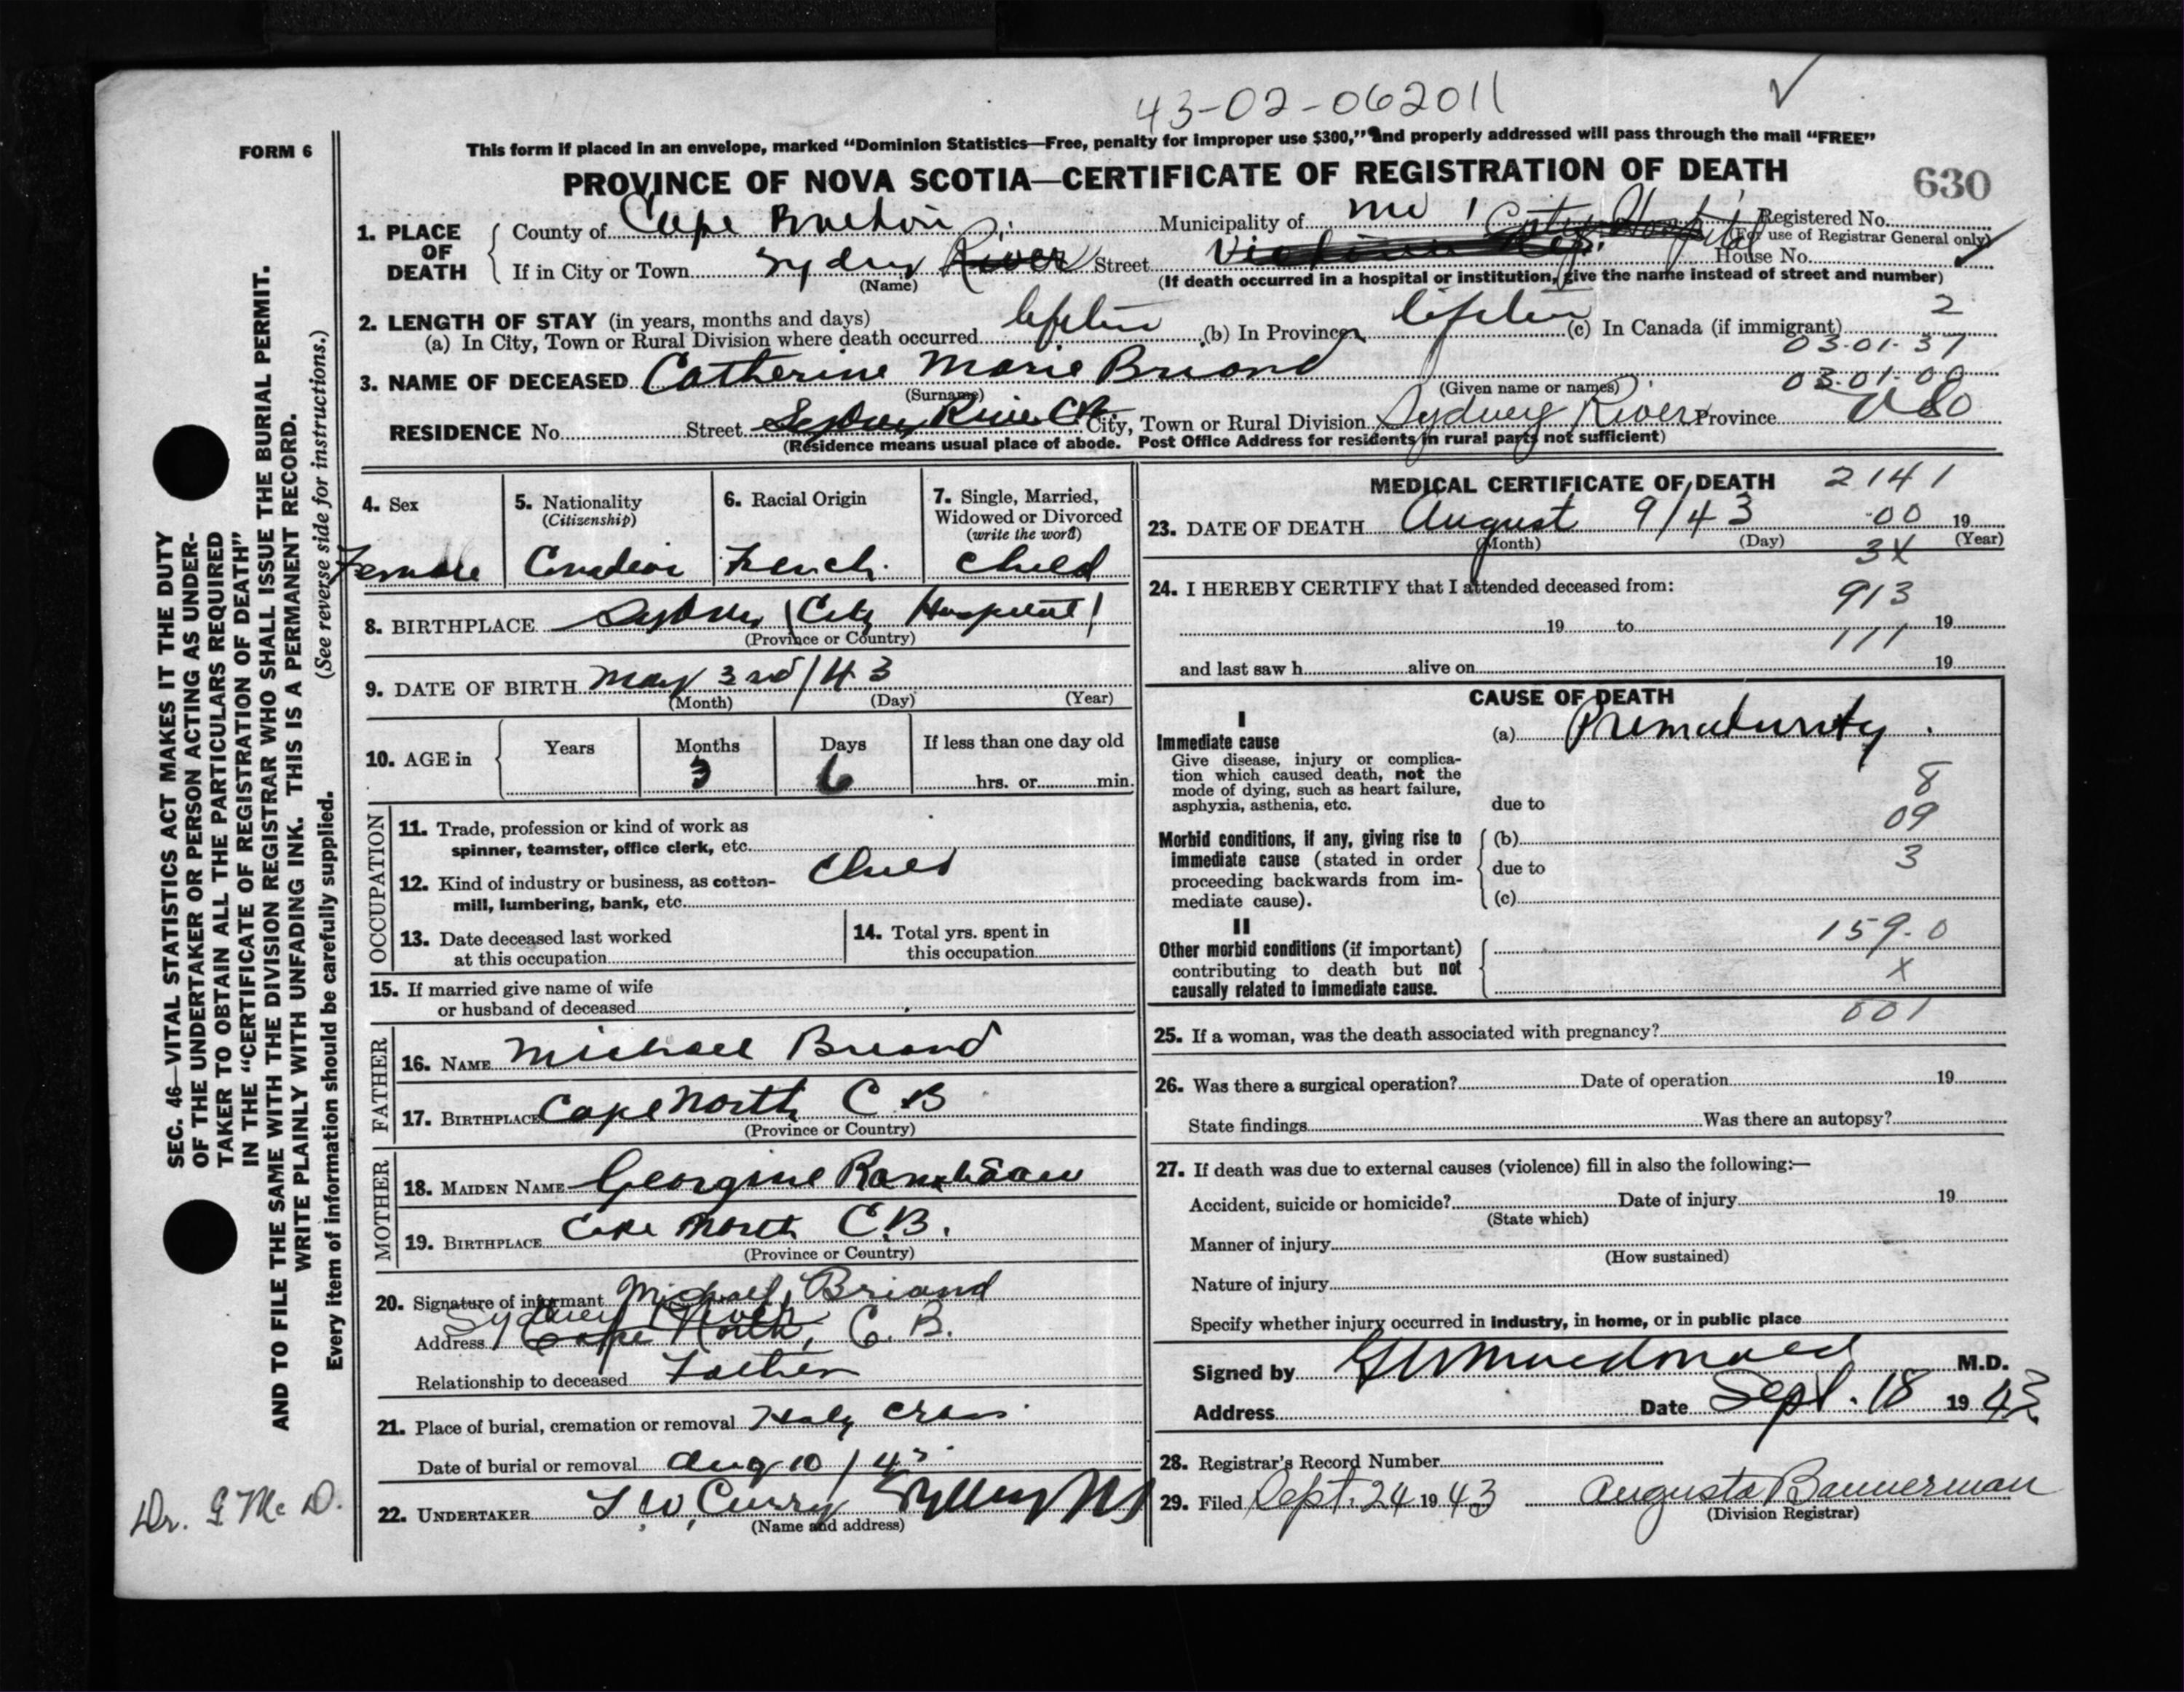 43-02-062011
FORM 6
This form if placed in an envelope, marked "Dominion Statistics—Free, penalty for improper use $300," and properly addressed will pass through the mail "FREE"
PROVINCE OF NOVA SCOTIA—CERTIFICATE OF REGISTRATION OF DEATH
630
1. PLACE OF DEATH
County of Cape Breton Municipality of Registered No.
(For use of Registrar General only)
If in City or Town Sydney River Street City Hospital House No.
(Name) (If death occurred in a hospital or institution, give the name instead of street and number)
2. LENGTH OF STAY (in years, months and days)
(a) In City, Town or Rural Division where death occurred lifetime (b) In Province lifetime (c) In Canada (if immigrant) 2
03-01-37
3. NAME OF DECEASED Catherine Marie Briand
(Surname) (Given name or names)
03-01-00
RESIDENCE No. Street Sydney River CB City, Town or Rural Division Sydney River Province
(Residence means usual place of abode. Post Office Address for residents in rural parts not sufficient)
4. Sex
Female
5. Nationality
(Citizenship)
Canadian
6. Racial Origin
French
7. Single, Married,
Widowed or Divorced
(write the word)
Child
8. BIRTHPLACE Sydney (City Hospital)
(Province or Country)
9. DATE OF BIRTH May 3rd/43
(Month) (Day) (Year)
10. AGE in Years Months Days If less than one day old
3 6 hrs. or min.
OCCUPATION
11. Trade, profession or kind of work as
spinner, teamster, office clerk, etc.
12. Kind of industry or business, as cotton-
mill, lumbering, bank, etc. Child
13. Date deceased last worked
at this occupation
14. Total yrs. spent in
this occupation
15. If married give name of wife
or husband of deceased
FATHER
16. NAME Michael Briand
17. BIRTHPLACE Cape North C B
(Province or Country)
MOTHER
18. MAIDEN NAME Georgine
19. BIRTHPLACE Cape North C.B.
(Province or Country)
20. Signature of informant Michael Briand
Sydney River
Address Cape North, C. B.
Relationship to deceased Father
21. Place of burial, cremation or removal Holy Cross
Date of burial or removal Aug 10 / 43
22. UNDERTAKER T.W. Curry Sydney NS
(Name and address)
MEDICAL CERTIFICATE OF DEATH 2141
23. DATE OF DEATH August 9/43 00 19
(Month) (Day) (Year)
3X
24. I HEREBY CERTIFY that I attended deceased from:
913
19 to 19
111
and last saw h alive on 19
CAUSE OF DEATH
I
Immediate cause
Give disease, injury or complica-
tion which caused death, not the
mode of dying, such as heart failure,
asphyxia, asthenia, etc.
(a) Prematurity
8
due to
09
Morbid conditions, if any, giving rise to
immediate cause (stated in order
proceeding backwards from im-
mediate cause).
(b)
3
due to
(c)
II
Other morbid conditions (if important)
contributing to death but not
causally related to immediate cause.
159.0
X
001
25. If a woman, was the death associated with pregnancy?
26. Was there a surgical operation? Date of operation 19
State findings Was there an autopsy?
27. If death was due to external causes (violence) fill in also the following:—
Accident, suicide or homicide? Date of injury 19
(State which)
Manner of injury
(How sustained)
Nature of injury
Specify whether injury occurred in industry, in home, or in public place
Signed by Macdonald M.D.
Address Date Sept. 18 1943
28. Registrar's Record Number
29. Filed Sept. 24 1943 Augusta Bannerman
(Division Registrar)
SEC. 46—VITAL STATISTICS ACT MAKES IT THE DUTY
OF THE UNDERTAKER OR PERSON ACTING AS UNDER-
TAKER TO OBTAIN ALL THE PARTICULARS REQUIRED
IN THE "CERTIFICATE OF REGISTRATION OF DEATH"
AND TO FILE THE SAME WITH THE DIVISION REGISTRAR WHO SHALL ISSUE THE BURIAL PERMIT.
WRITE PLAINLY WITH UNFADING INK. THIS IS A PERMANENT RECORD.
Every item of information should be carefully supplied. (See reverse side for instructions.)
Dr. G Mc D.